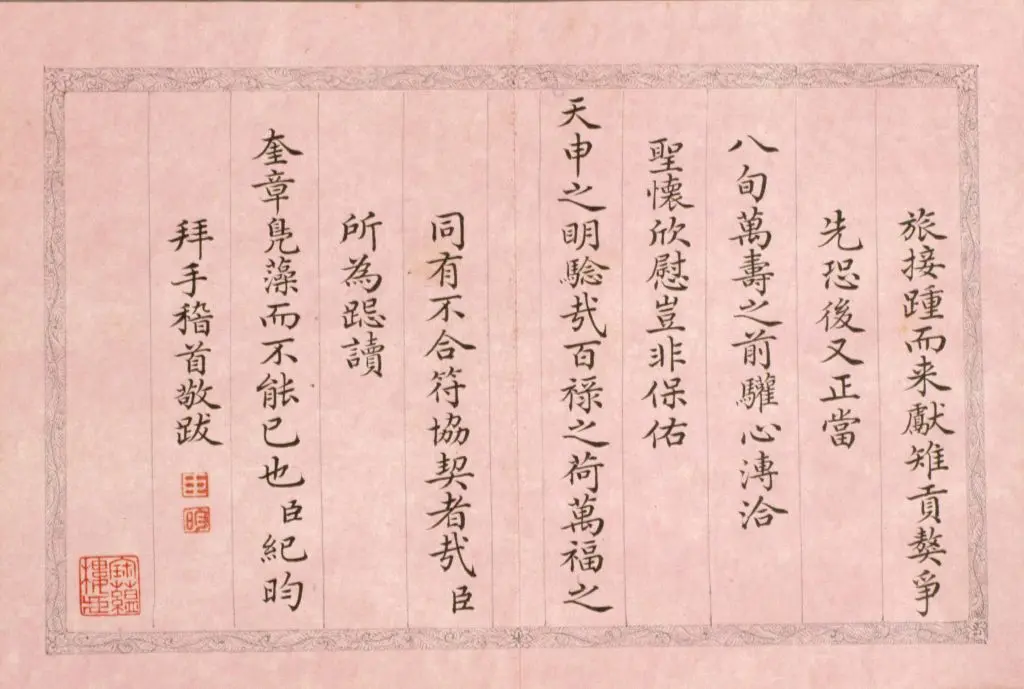 旅接踵而来獻雉貢獒爭
先恐後又正當
八旬萬壽之前驩心溥洽
聖懷欣慰豈非保佑
天申之明騐㢤百禄之荷萬福之
同有不合符協契者㢤臣
所為跽讀
奎章鳬藻而不能已也臣紀昀
拜手稽首敬跋
臣
昀